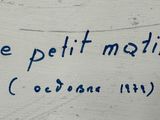 e petit mati
( octobre 1979)